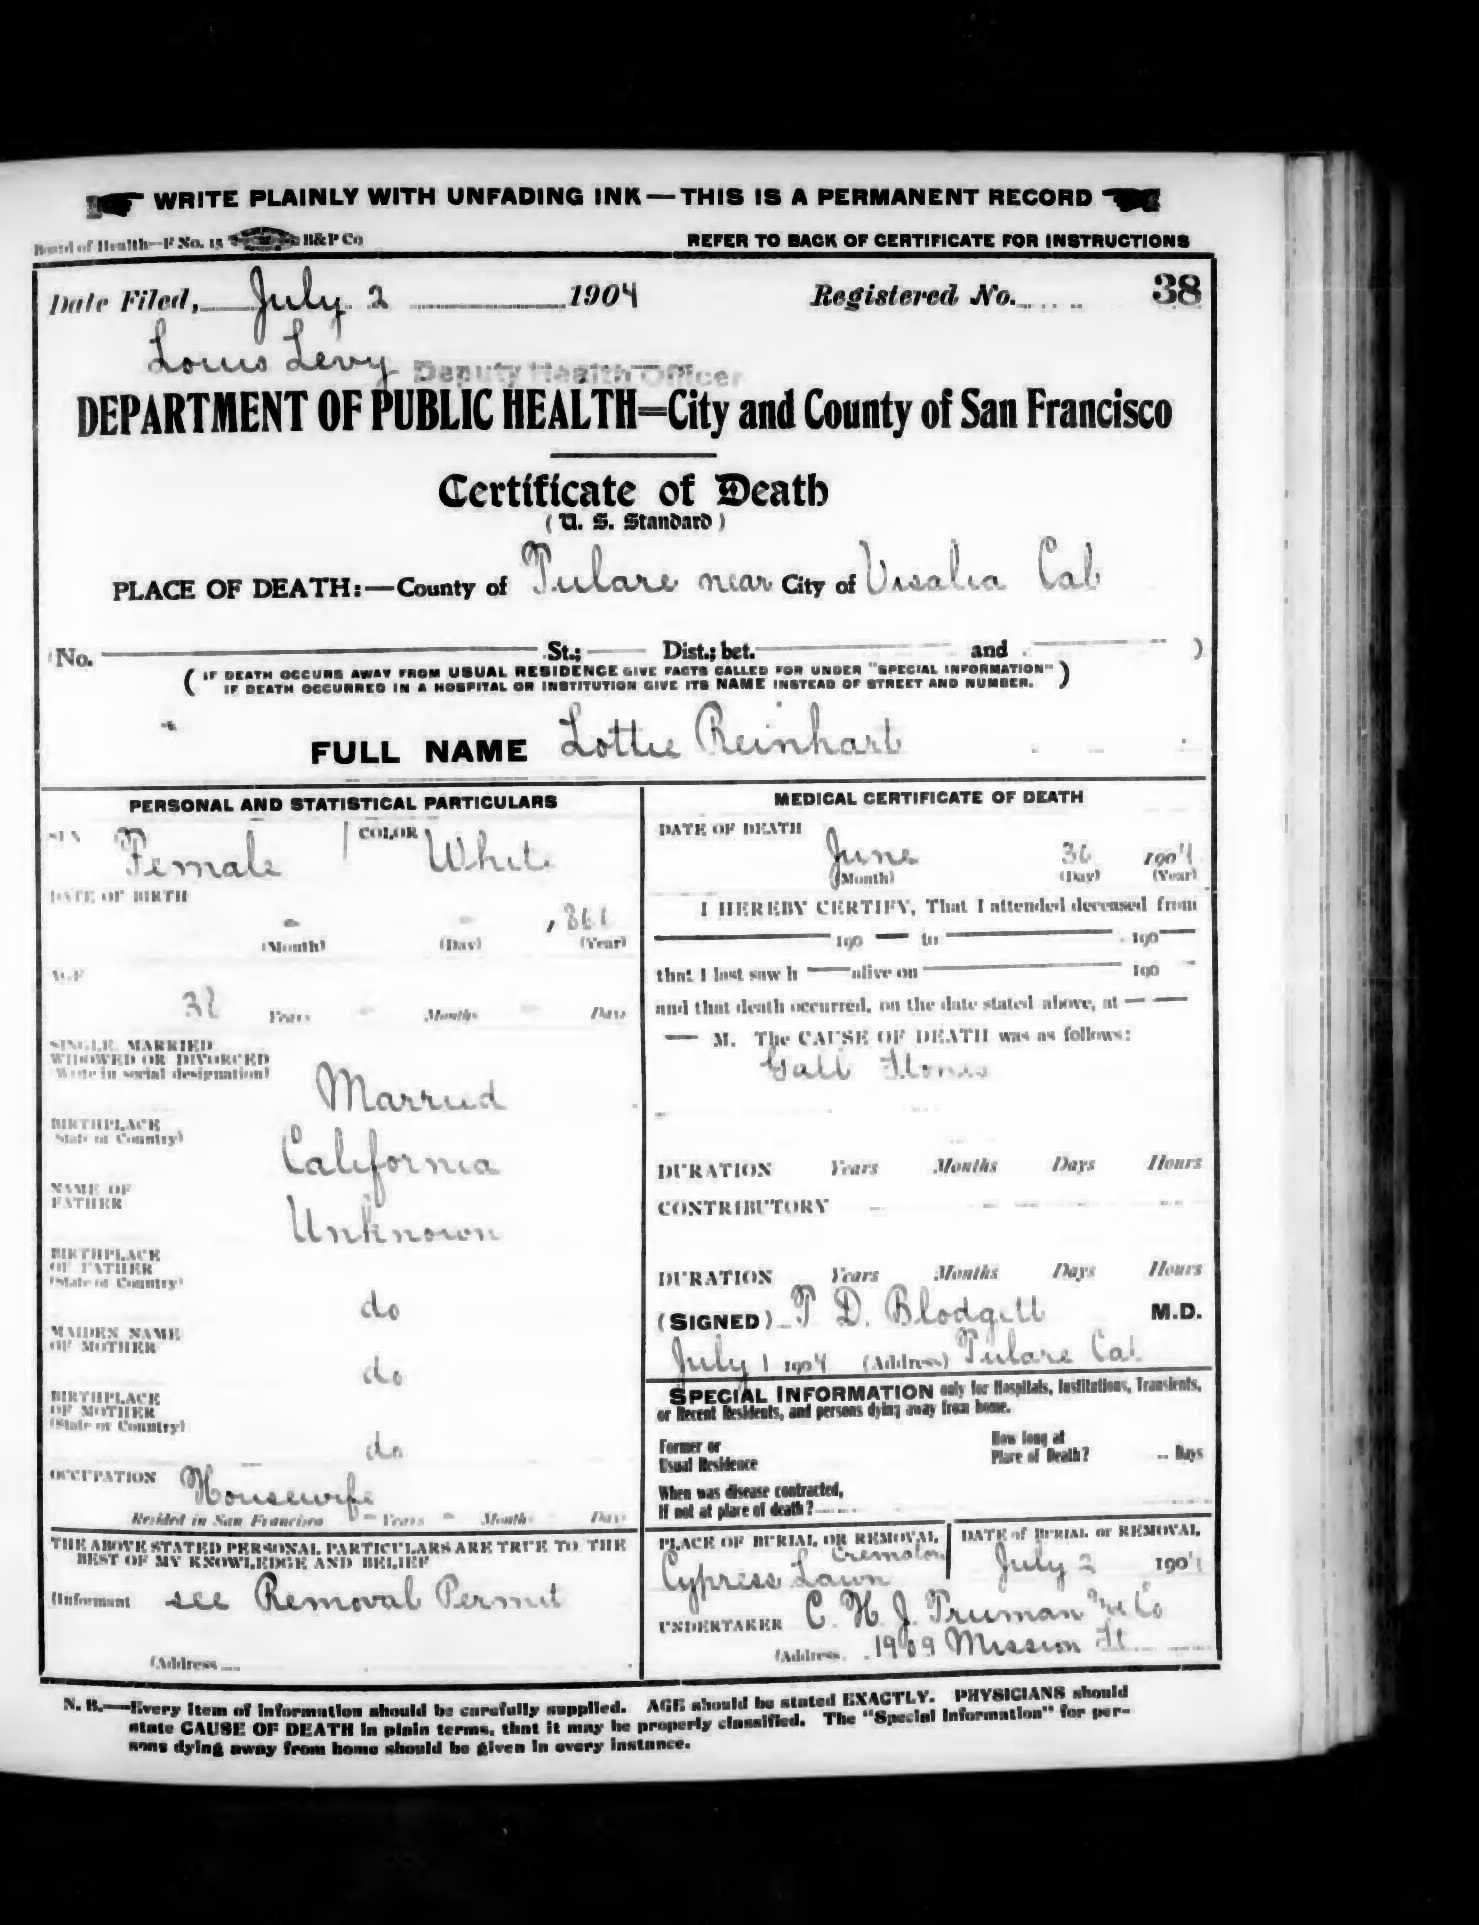 WRITE PLAINLY WITH UNFADING INK—THIS IS A PERMANENT RECORD
Board of Health—F No. 15 B&P Co REFER TO BACK OF CERTIFICATE FOR INSTRUCTIONS
Date Filed, July 2 1904 Registered No. 38
Louis Levy Deputy Health Officer
DEPARTMENT OF PUBLIC HEALTH=City and County of San Francisco
Certificate of Death
(U. S. Standard)
PLACE OF DEATH:—County of Tulare near City of Visalia Cal
(No. St.; Dist.; bet. and )
(IF DEATH OCCURS AWAY FROM USUAL RESIDENCE GIVE FACTS CALLED FOR UNDER "SPECIAL INFORMATION"
IF DEATH OCCURRED IN A HOSPITAL OR INSTITUTION GIVE ITS NAME INSTEAD OF STREET AND NUMBER.)
FULL NAME Lottie Reinhart
PERSONAL AND STATISTICAL PARTICULARS
SEX Female COLOR White
DATE OF BIRTH
(Month) (Day) (Year)
AGE
Years Months Days
SINGLE, MARRIED
WIDOWED OR DIVORCED
(Write in social designation)
Married
BIRTHPLACE
(State or Country)
California
NAME OF
FATHER
Unknown
BIRTHPLACE
OF FATHER
(State or Country)
do
MAIDEN NAME
OF MOTHER
do
BIRTHPLACE
OF MOTHER
(State or Country)
do
OCCUPATION Housewife
Resided in San Francisco – Years – Months Days
THE ABOVE STATED PERSONAL PARTICULARS ARE TRUE TO THE
BEST OF MY KNOWLEDGE AND BELIEF
(Informant see Removal Permit
(Address
MEDICAL CERTIFICATE OF DEATH
DATE OF DEATH
June 30 1904
(Month) (Day) (Year)
I HEREBY CERTIFY, That I attended deceased from
190 — to 190—
that I last saw h — alive on 190
and that death occurred, on the date stated above, at — —
— M. The CAUSE OF DEATH was as follows:
Gall Stones
DURATION Years Months Days Hours
CONTRIBUTORY
DURATION Years Months Days Hours
(SIGNED) T D. Blodgett M.D.
July 1 1904 (Address) Tulare Cal
SPECIAL INFORMATION only for Hospitals, Institutions, Transients,
or Recent Residents, and persons dying away from home.
Former or
Usual Residence
How long at
Place of Death? Days
When was disease contracted,
If not at place of death?
PLACE OF BURIAL OR REMOVAL
Cypress Lawn
DATE of BURIAL or REMOVAL
July 2 1904
UNDERTAKER C. H. J. Truman & Co
(Address 1909 Mission St
N. B.—Every item of information should be carefully supplied. AGE should be stated EXACTLY. PHYSICIANS should
state CAUSE OF DEATH in plain terms, that it may be properly classified. The "Special Information" for per-
sons dying away from home should be given in every instance.